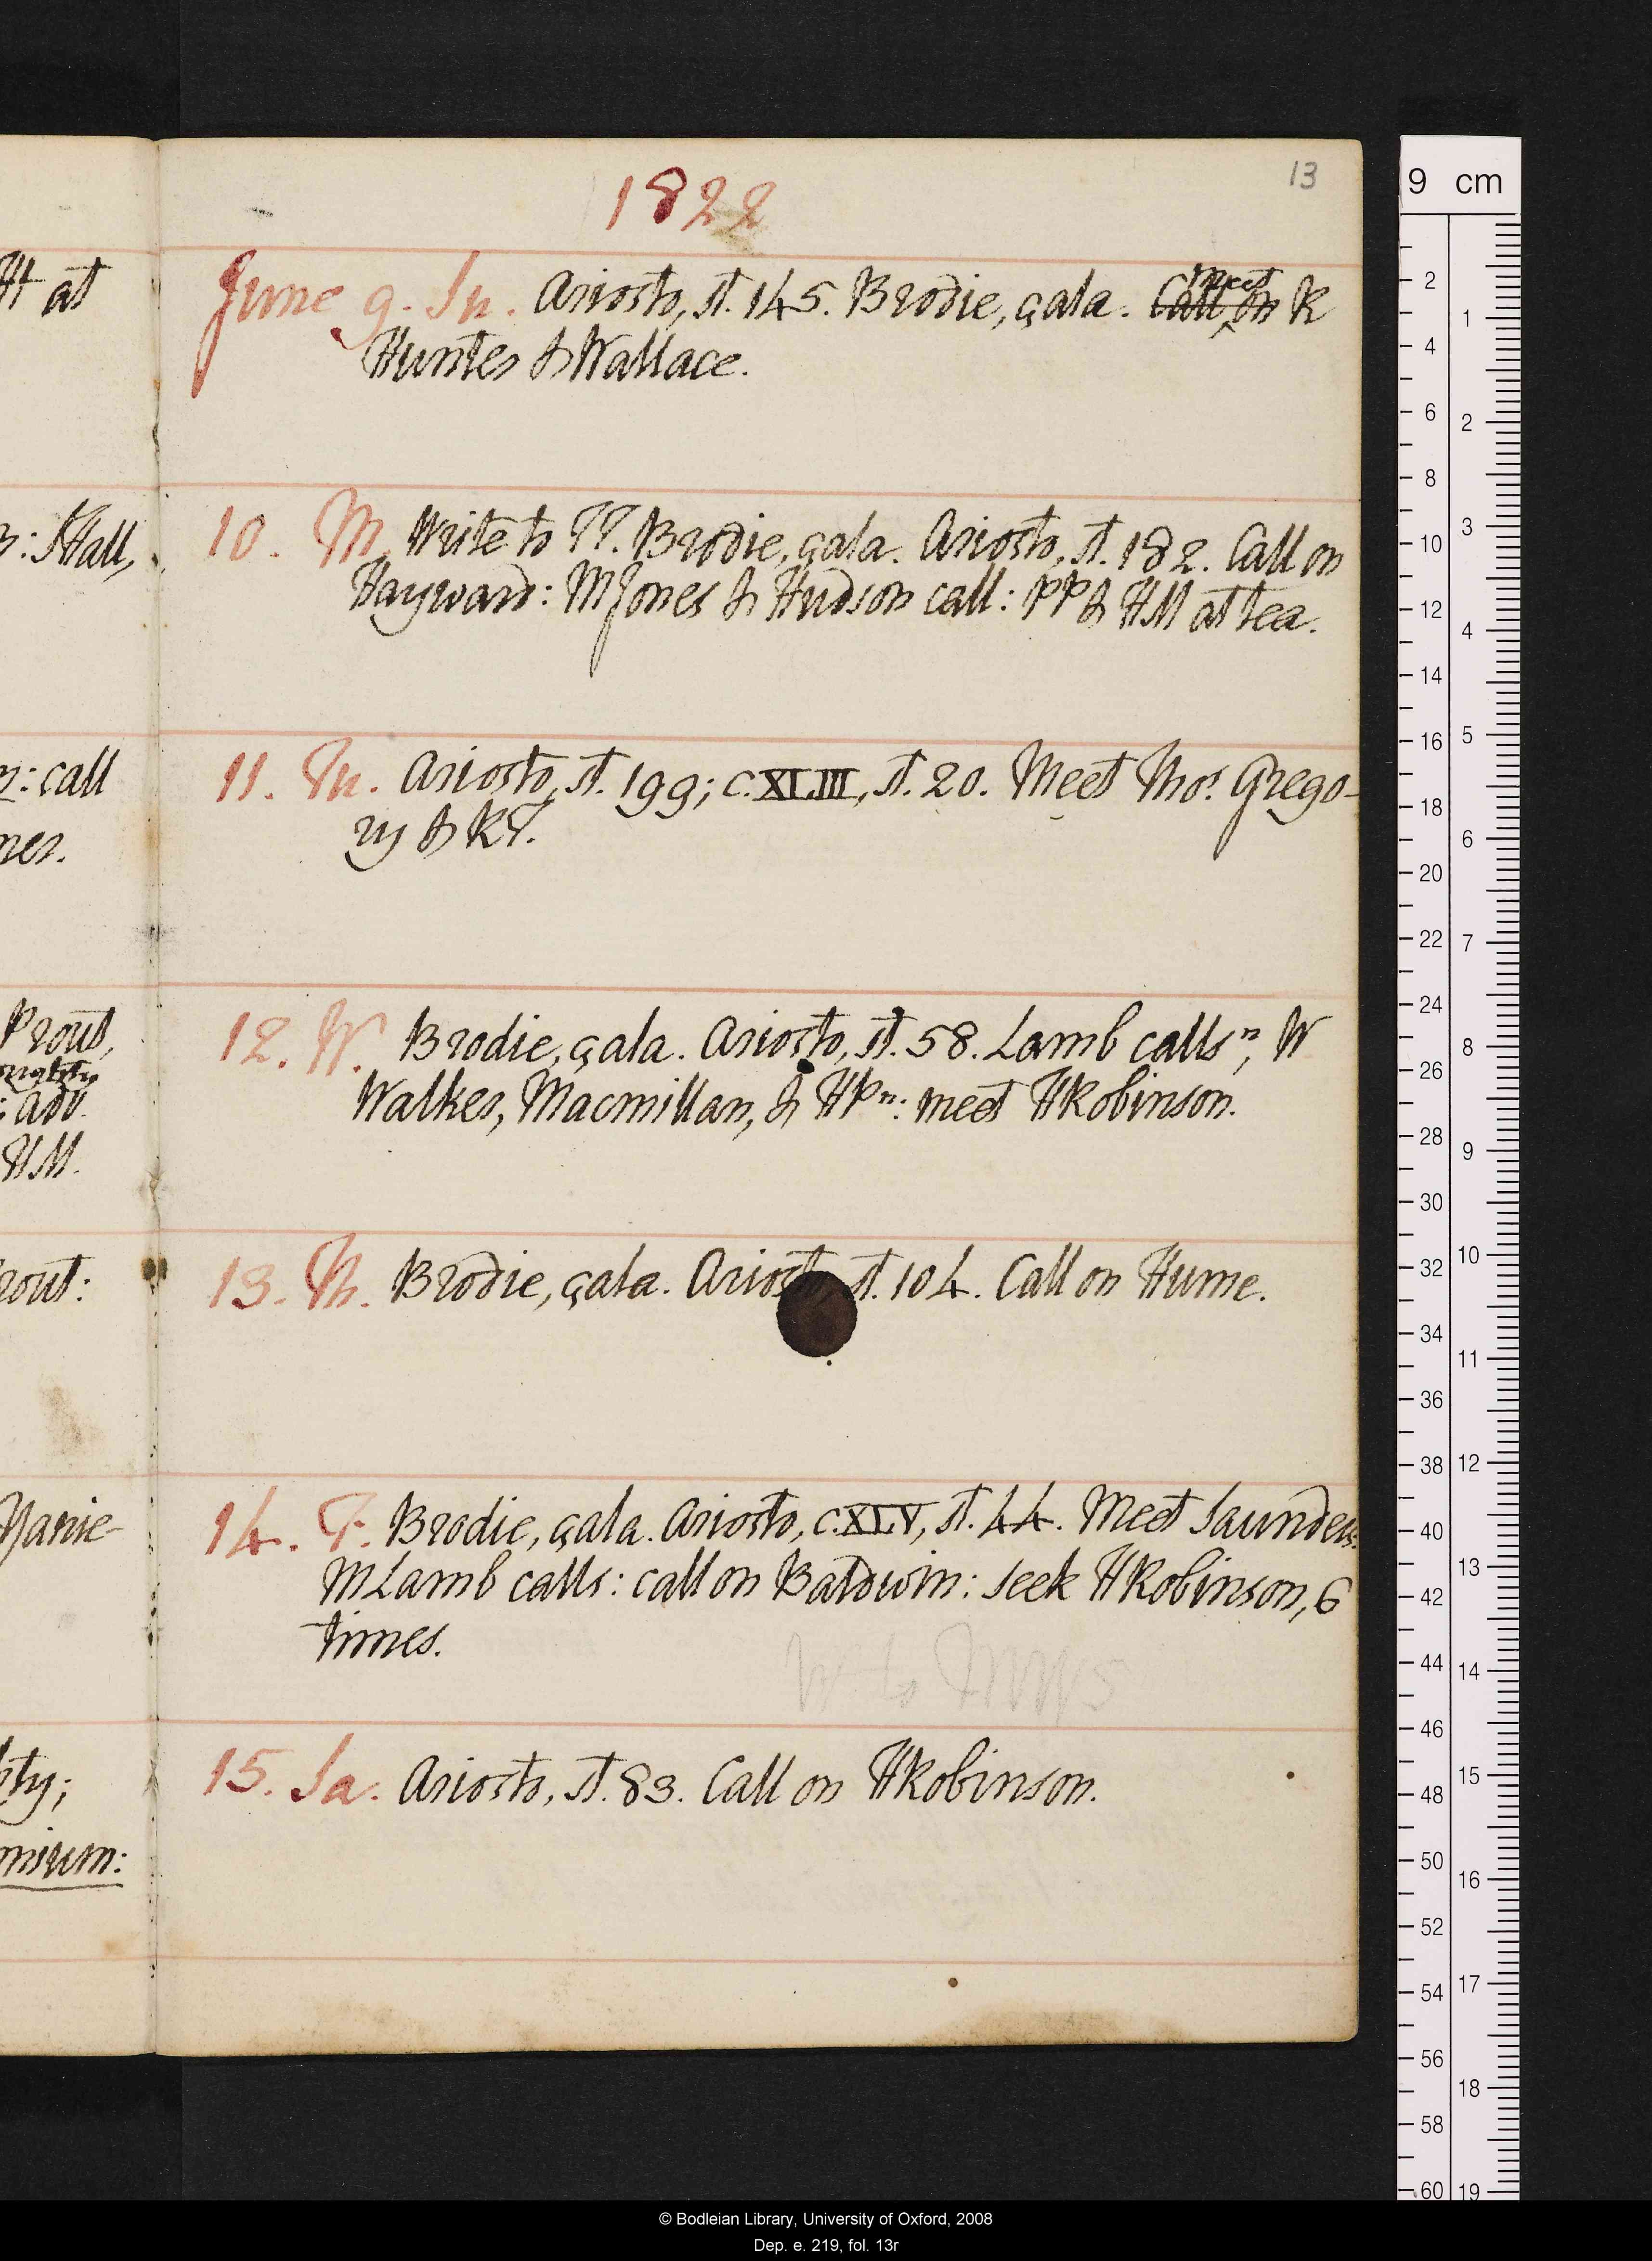 13
1822
June 9. Su. Ariosto, st. 145. Brodie, çala. Call on meet R
Hunter & Wallace.
10. M. Write to TT. Brodie, çala. Ariosto, st. 182. Call on
Hayward: M Jones & Hudson call: PP & HM at tea.
11. Tu. Ariosto, st. 199; c. XLIII, st. 20. Meet Thos. Grego-
ry & RT.
12. W. Brodie, çala. Ariosto, st. 58. Lamb calls n, W
Walker, Macmillan, & HPn: meet HRobinson.
13. Th. Brodie, çala. Ariosto, st. 104. Call on Hume.
14. F. Brodie, çala. Ariosto, c. XLV, st. 44. Meet Saunders:
M Lamb calls: call on Baldwin: seek HRobinson, 6
times.
15. Sa. Ariosto, st. 83. Call on HRobinson.
H at
: SHall,
: call
nes.
Prout,
: adv.
HM.
rout:
Marie-
ty;
mium:
9 cm
2
4
6
8
10
12
14
16
18
20
22
24
26
28
30
32
34
36
38
40
42
44
46
48
50
52
54
56
58
60
1
2
3
4
5
6
7
8
9
10
11
12
13
14
15
16
17
18
19
© Bodleian Library, University of Oxford, 2008
Dep. e. 219, fol. 13r